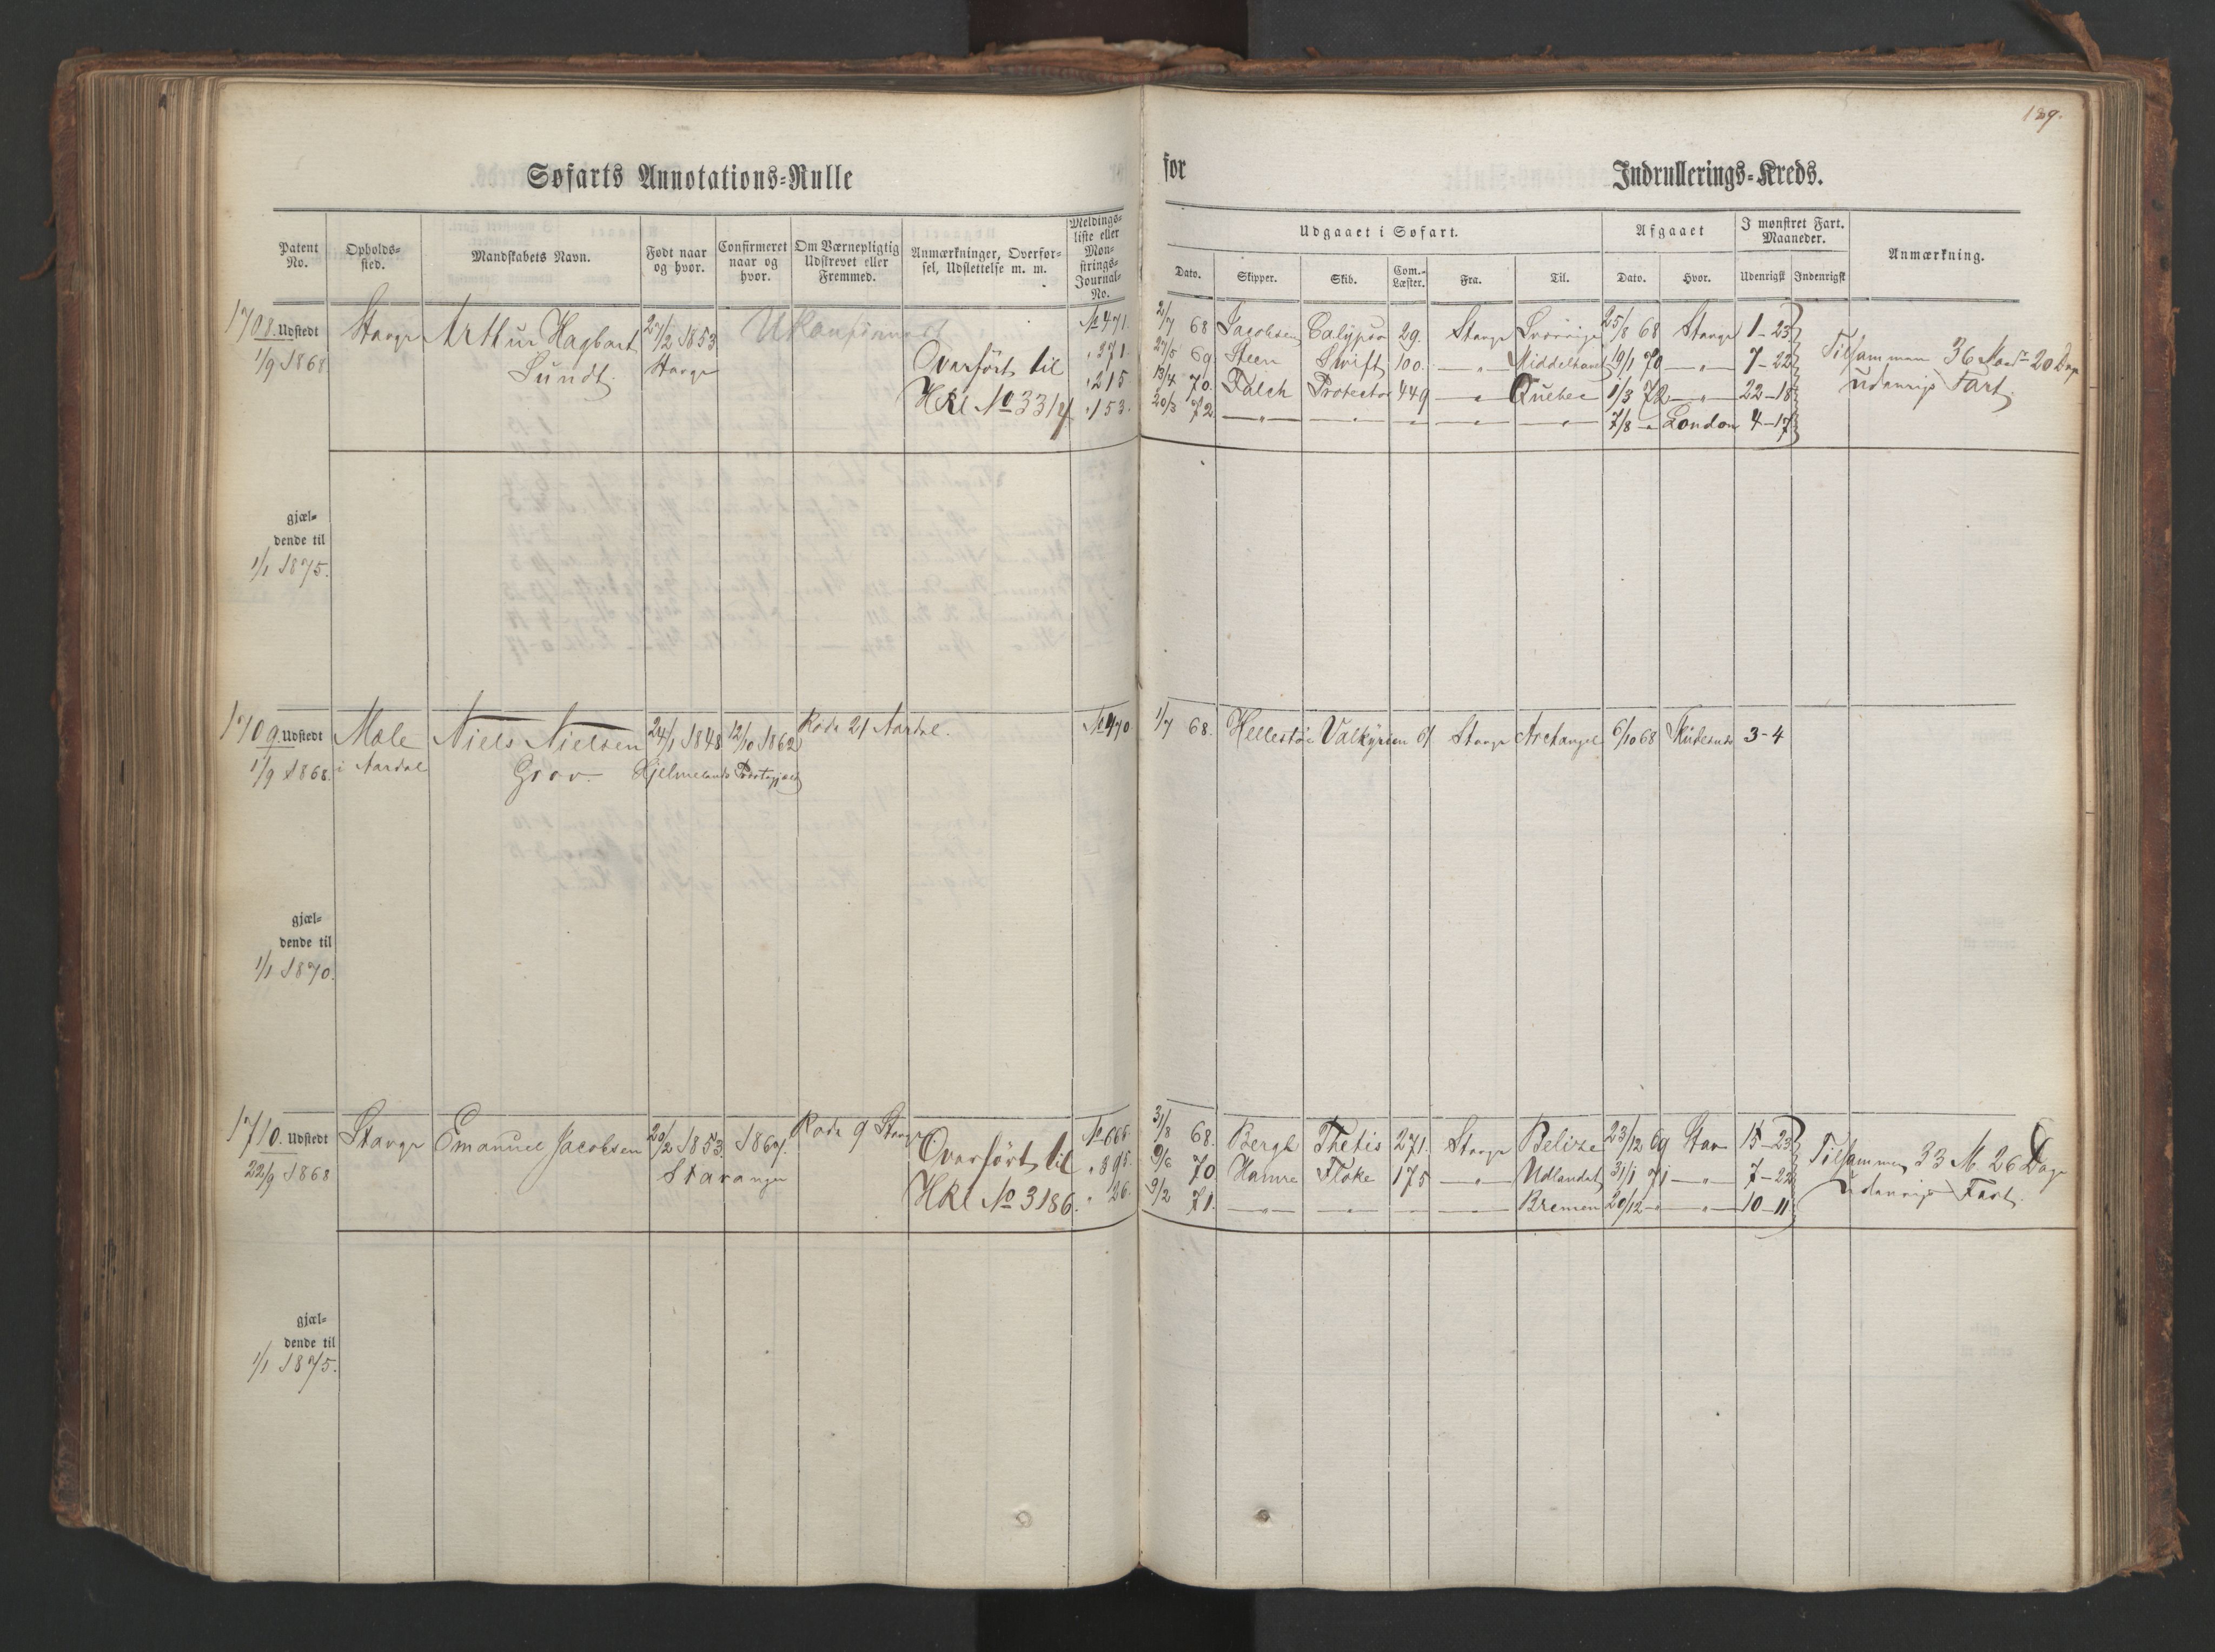 189.
Søfarts Annotations-Rulle for Indrullerings-Kreds.
Patent No.
Opholds-sted.
Mandskabets Navn.
Født naar og hvor.
Confirmeret naar og hvor.
Om Værnepligtig Udskrevet eller Fremmed.
Anmærkninger, Overførsel, Udslettelse m. m.
Meldings-liste eller Mønstrings-Journal-No.
Udgaaet i Søfart.
Dato. Skipper. Skib. Com.-Læster. Fra. Til.
Afgaaet
Dato. Hvor.
I mønstret Fart. Maaneder.
Udenrigsk Indenrigsk
Anmærkning.
1708. Udstedt Stavgr Arthur Hagbart 27/2 1853 Ukonfirmert No 471. 2/7 68 Jacobsen Calypso 29. Stavgr Sverrige 25/8 68 Stavgr 1-23
1/9 1868 Lundt. Stavgr Overført til " 271. 27/5 69 Steen Swift 100. " Middelhavet 19/1 70 " 7-22 Tilsammen 36 Maadr 20 Dage
HRl No 3314 " 215 13/4 70. Falch Protector 449 " Quebec 1/3 72 " 22-18 udenrigs Fart.
" 153. 20/3 72 " 7/8 " London 4-17
gjæl-
dende til
1/1 1875.
1709. Udstedt Mæle Niels Nielsen 24/1 1848 12/10 1862 Rode 21 Aardal. No 470 1/7 68. Hellestø Valkyrien 61 Stavgr Archangel 6/10 68 Skudesnes 3-4
1/9 1868. i Aardal Grov. Hjelmelands Præstegjæld
gjæl-
dende til
1/1 1870.
1710. Udstedt Stavgr Emanuel Jacobsen 20/2 1853. 1867. Rode 9 Stavgr No 666. 31/8 68. Bergh Thetis 271. Stavgr Belize 23/12 69 Stav 15-23
22/9 1868 Stavanger Overført til " 395. 9/6 70 Hamre Floke 175 " Udlandet 31/1 71 " 7-22 Tilsammen 33 M. 26 Dage
HRl No 3186. " 26. 9/2 71. " Bremen 20/12 " 10-11 udenrigs Fart.
gjæl-
dende til
1/1 1875.